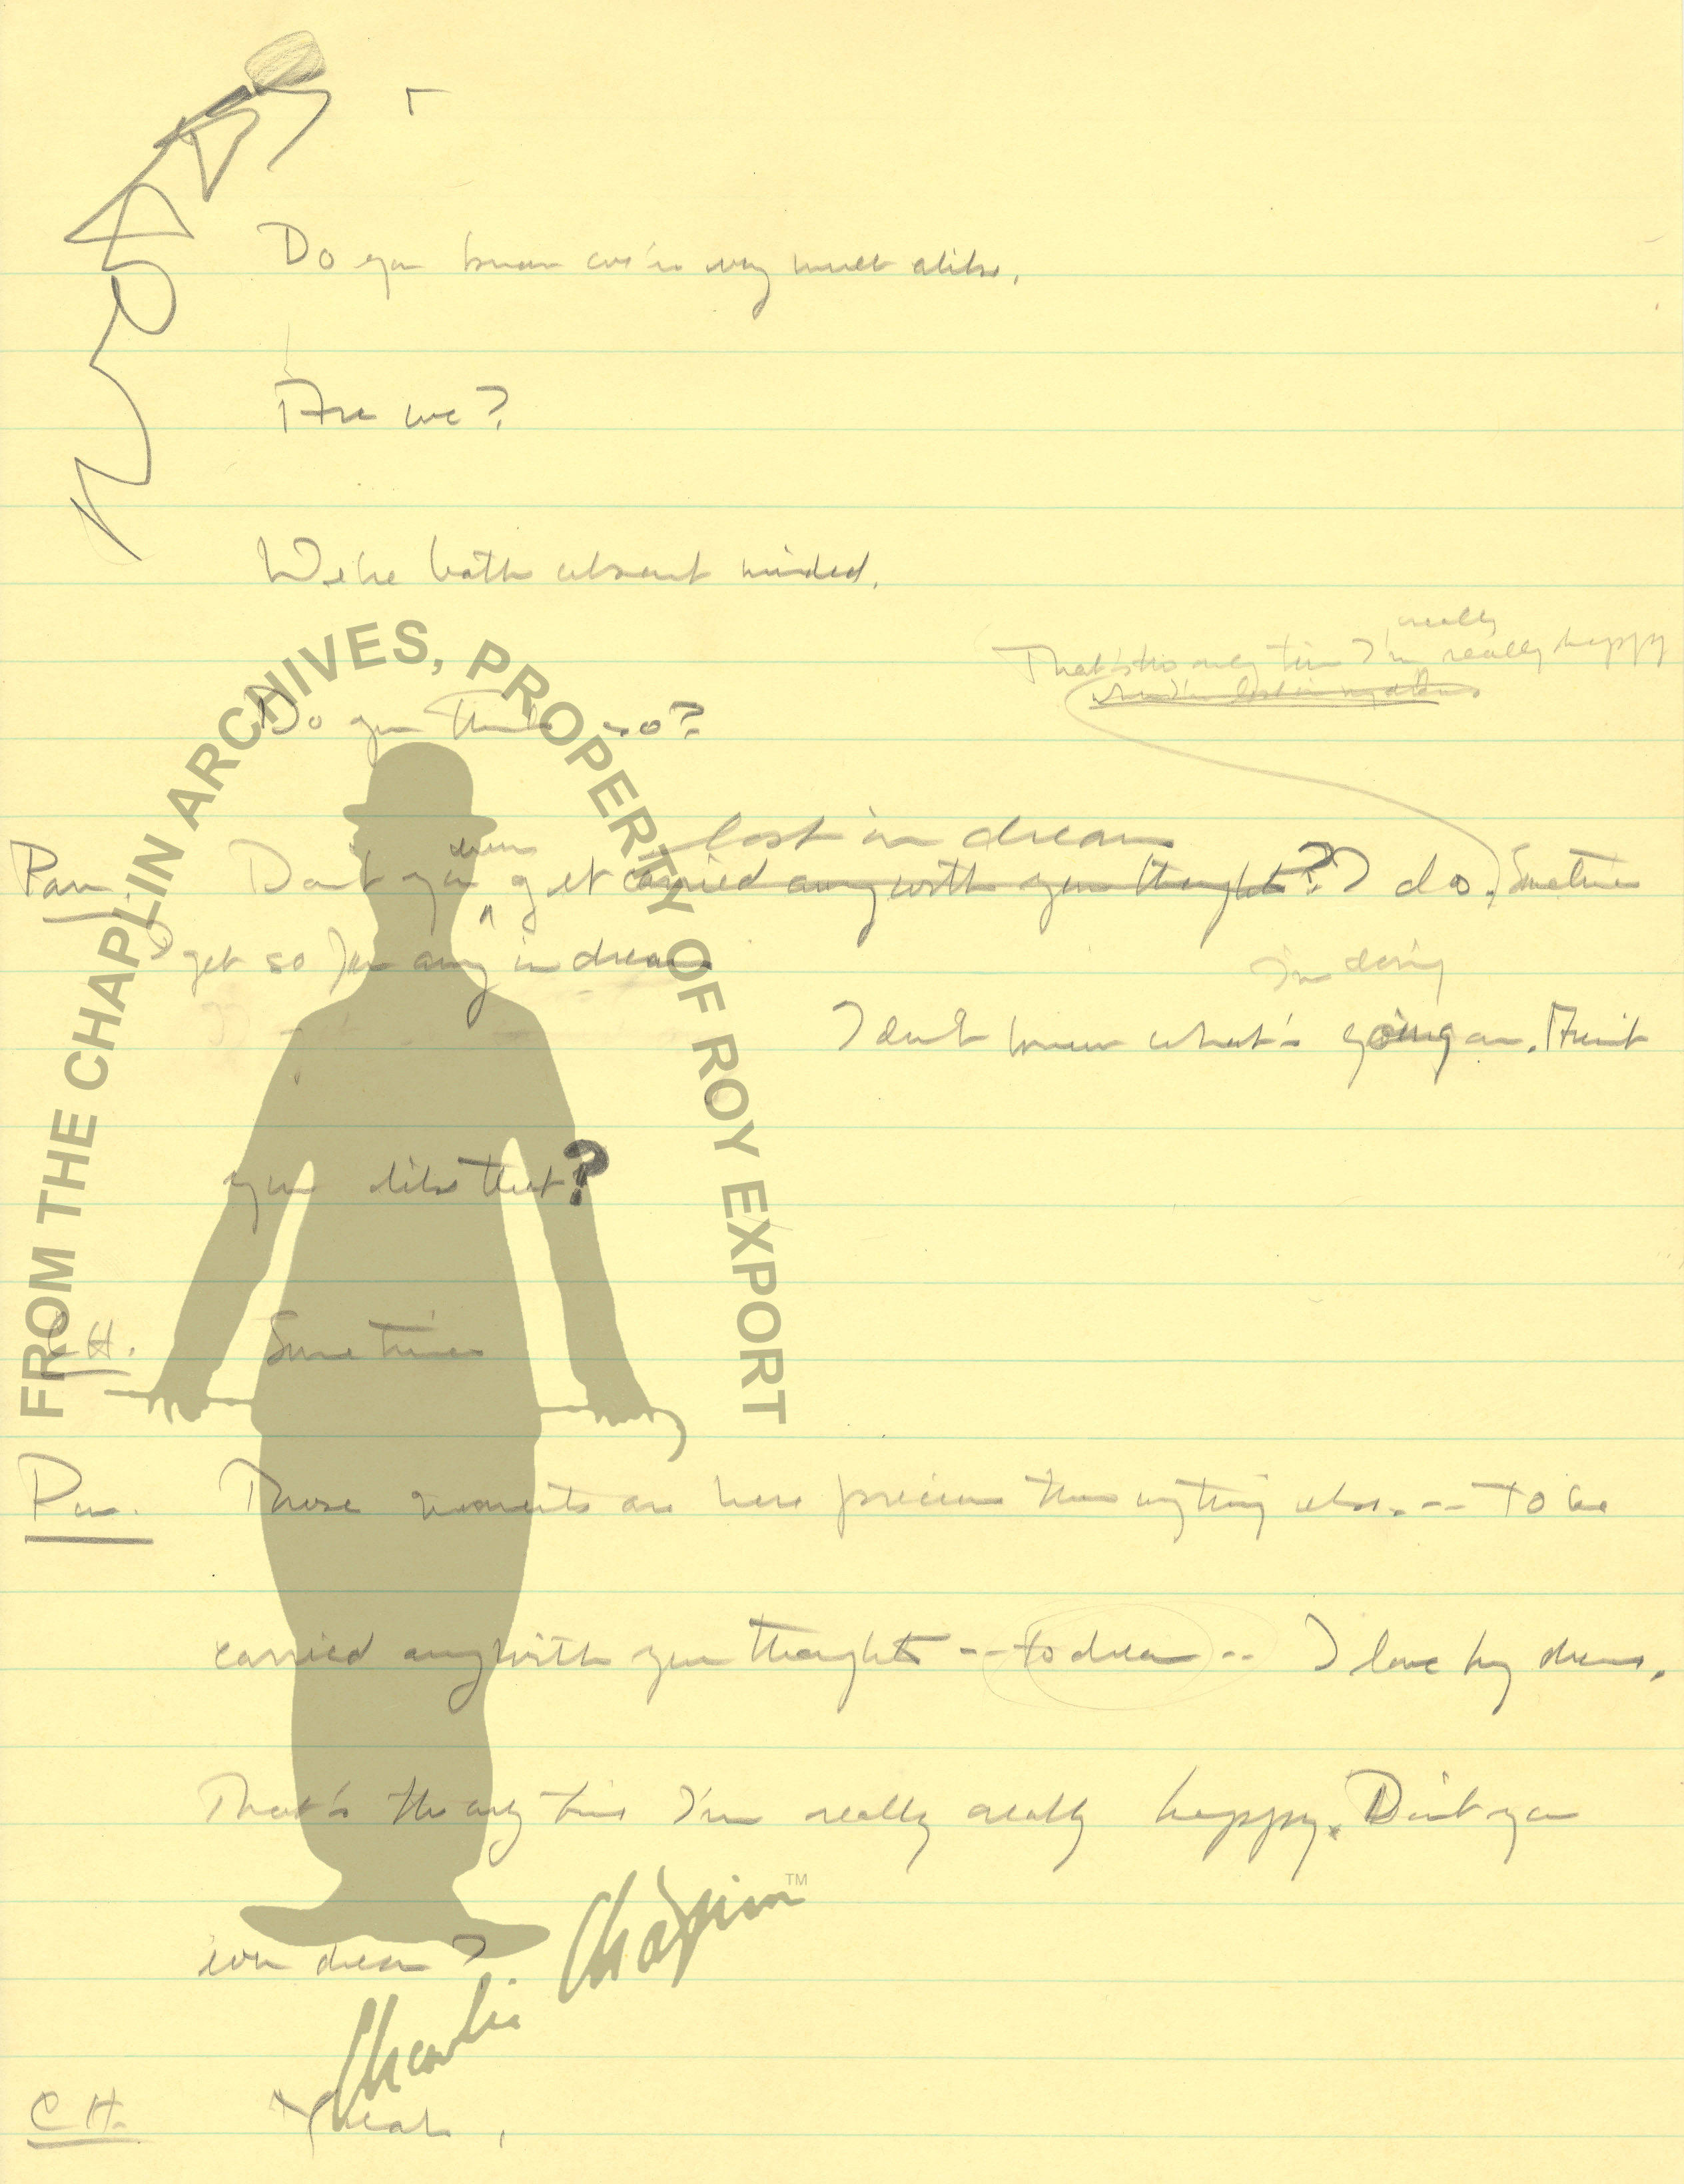 Do you know we're very much alike.
Are we?
We're both absent minded.
really
That's the only time I'm really happy
when I'm lost in my dreams
Do you think so?
lost in dream
Pau. Don't you ever get carried away with your thoughts? I do. Sometimes
I get so far away in dreams
I'm doing
I don't know what's going on. Aren't
you like that?
C H. Sometimes
Pau. Those moments are more precious than anything else. -- To be
carried away with your thoughts -- to dream -- I love my dreams.
That's the only time I'm really really happy. Don't you
ever dream?
C H. Yeah.
FROM THE CHAPLIN ARCHIVES, PROPERTY OF ROY EXPORT
Charlie Chaplin TM